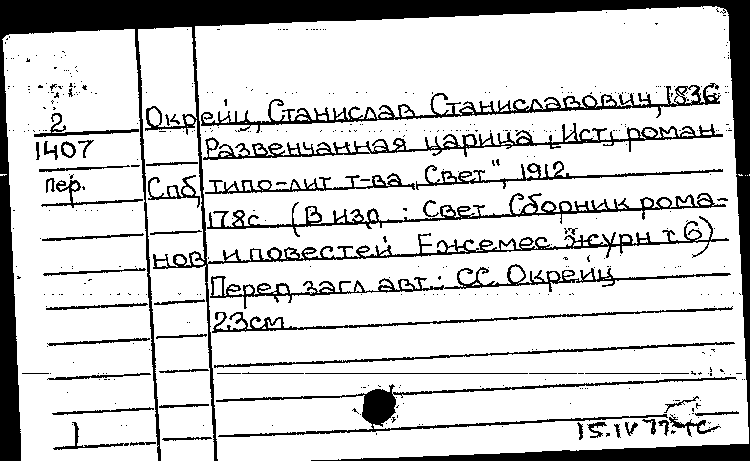 2 Окрейц, Станислав Станиславович, 1836
1407 Развенчанная царица [Ист] роман
пер. Спб, типо-лит т-ва „Свет", 1912.
178с (В изд : Свет. Сборник рома-
нов и повестей Ежемес. журн т 6)
Перед загл авт.: С.С. Окрейц
23см
1 15.IV 77